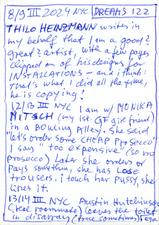 8/9 III 2024 NYC DREAMS 122
THILO HEINZMANN writes in
my behalf that i am a good?
great? artist, with a few pages
clipped on of his designs for
INSTALLATIONS – and i think:
that's what i did all the time
he is copying!
12/13 III NYC I am w/ MONIKA
NITSCH (my 1st. GF girl friend)
in a Bowling Alley. She said
"let's order some CHEAP PROSECCO"
I say "too expensive" (so no
prosecco) Later she orders or
pays somthing, she has LOSE
trousers. i touch her PUSSY, she
likes it.
13/14 III NYC Austin Hutchinson
leaves the toilet
in disarray (true sometimes)